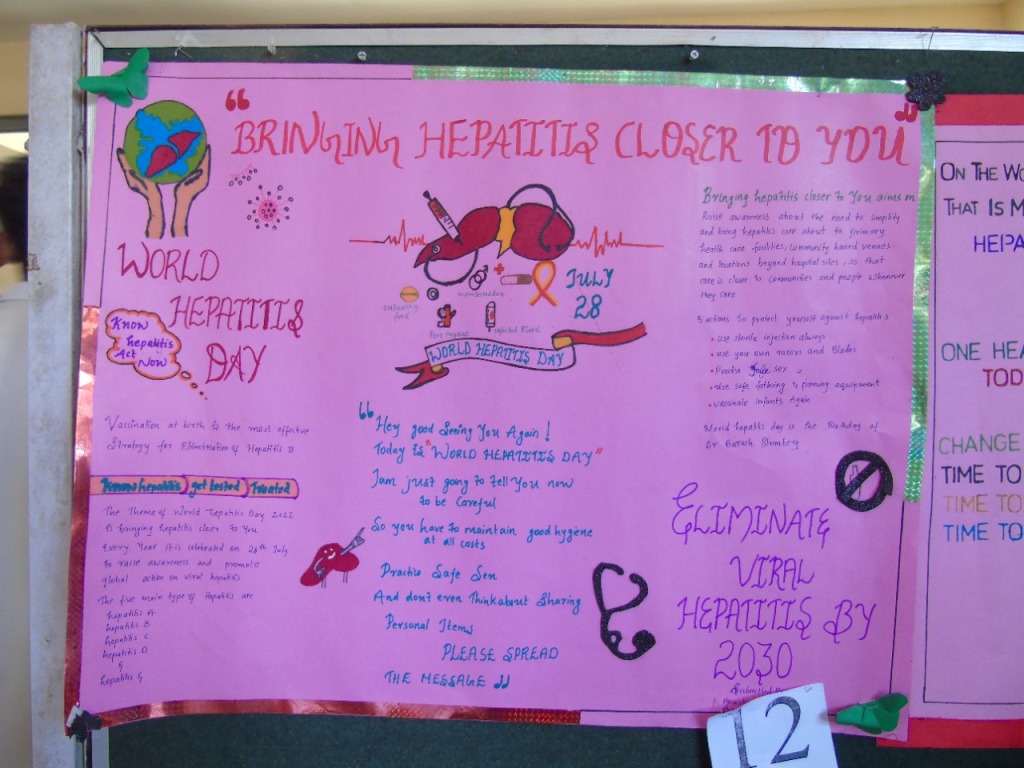 "BRINGING HEPATITIS CLOSER TO YOU"
WORLD
HEPATITIS
DAY
Know
hepatitis
Act
Now
Vaccination at birth is the most effective
Strategy for Elimination of Hepatitis B
Know hepatitis get tested Treated
The Theme of World Hepatitis Day 2022
Is bringing hepatitis closer to You
Every Year it is celebrated on 28th July
to raise awareness and promote
global action on viral hepatitis
The five main type of Hepatitis are
hepatitis A
hepatitis B
hepatitis C
hepatitis D
&
hepatitis
JULY
28
food
Infected Blood
WORLD HEPATITIS DAY
"Hey good Seeing You Again!
Today is "WORLD HEPATITIS DAY"
Iam just going to tell You now
to be Careful
So you have to maintain good hygiene
at all costs
Practice Safe Sex
And don't even Think about Sharing
Personal Items
PLEASE SPREAD
THE MESSAGE
Bringing hepatitis closer to You aims on
Raise awareness about the need to simplify
and bring hepatitis care about to primary
health care facilities, Community based venues
and locations beyond hospital sites, so that
care is closer to communities and people whenever
they care
5 actions to protect yourself against hepatitis
• use sterile injection always
• use you own razors and Blades
• Practise safe sex
• use safe tattoing & piercing equipment
• vaccinate infants Again
World hepatitis day is the Birthday of
Dr. Baruch Blumberg
ELIMINATE
VIRAL
HEPATITIS BY
2030
12
ON THE WO
THAT IS M
HEPA
ONE HEA
TOD
CHANGE
TIME TO
TIME TO
TIME TO